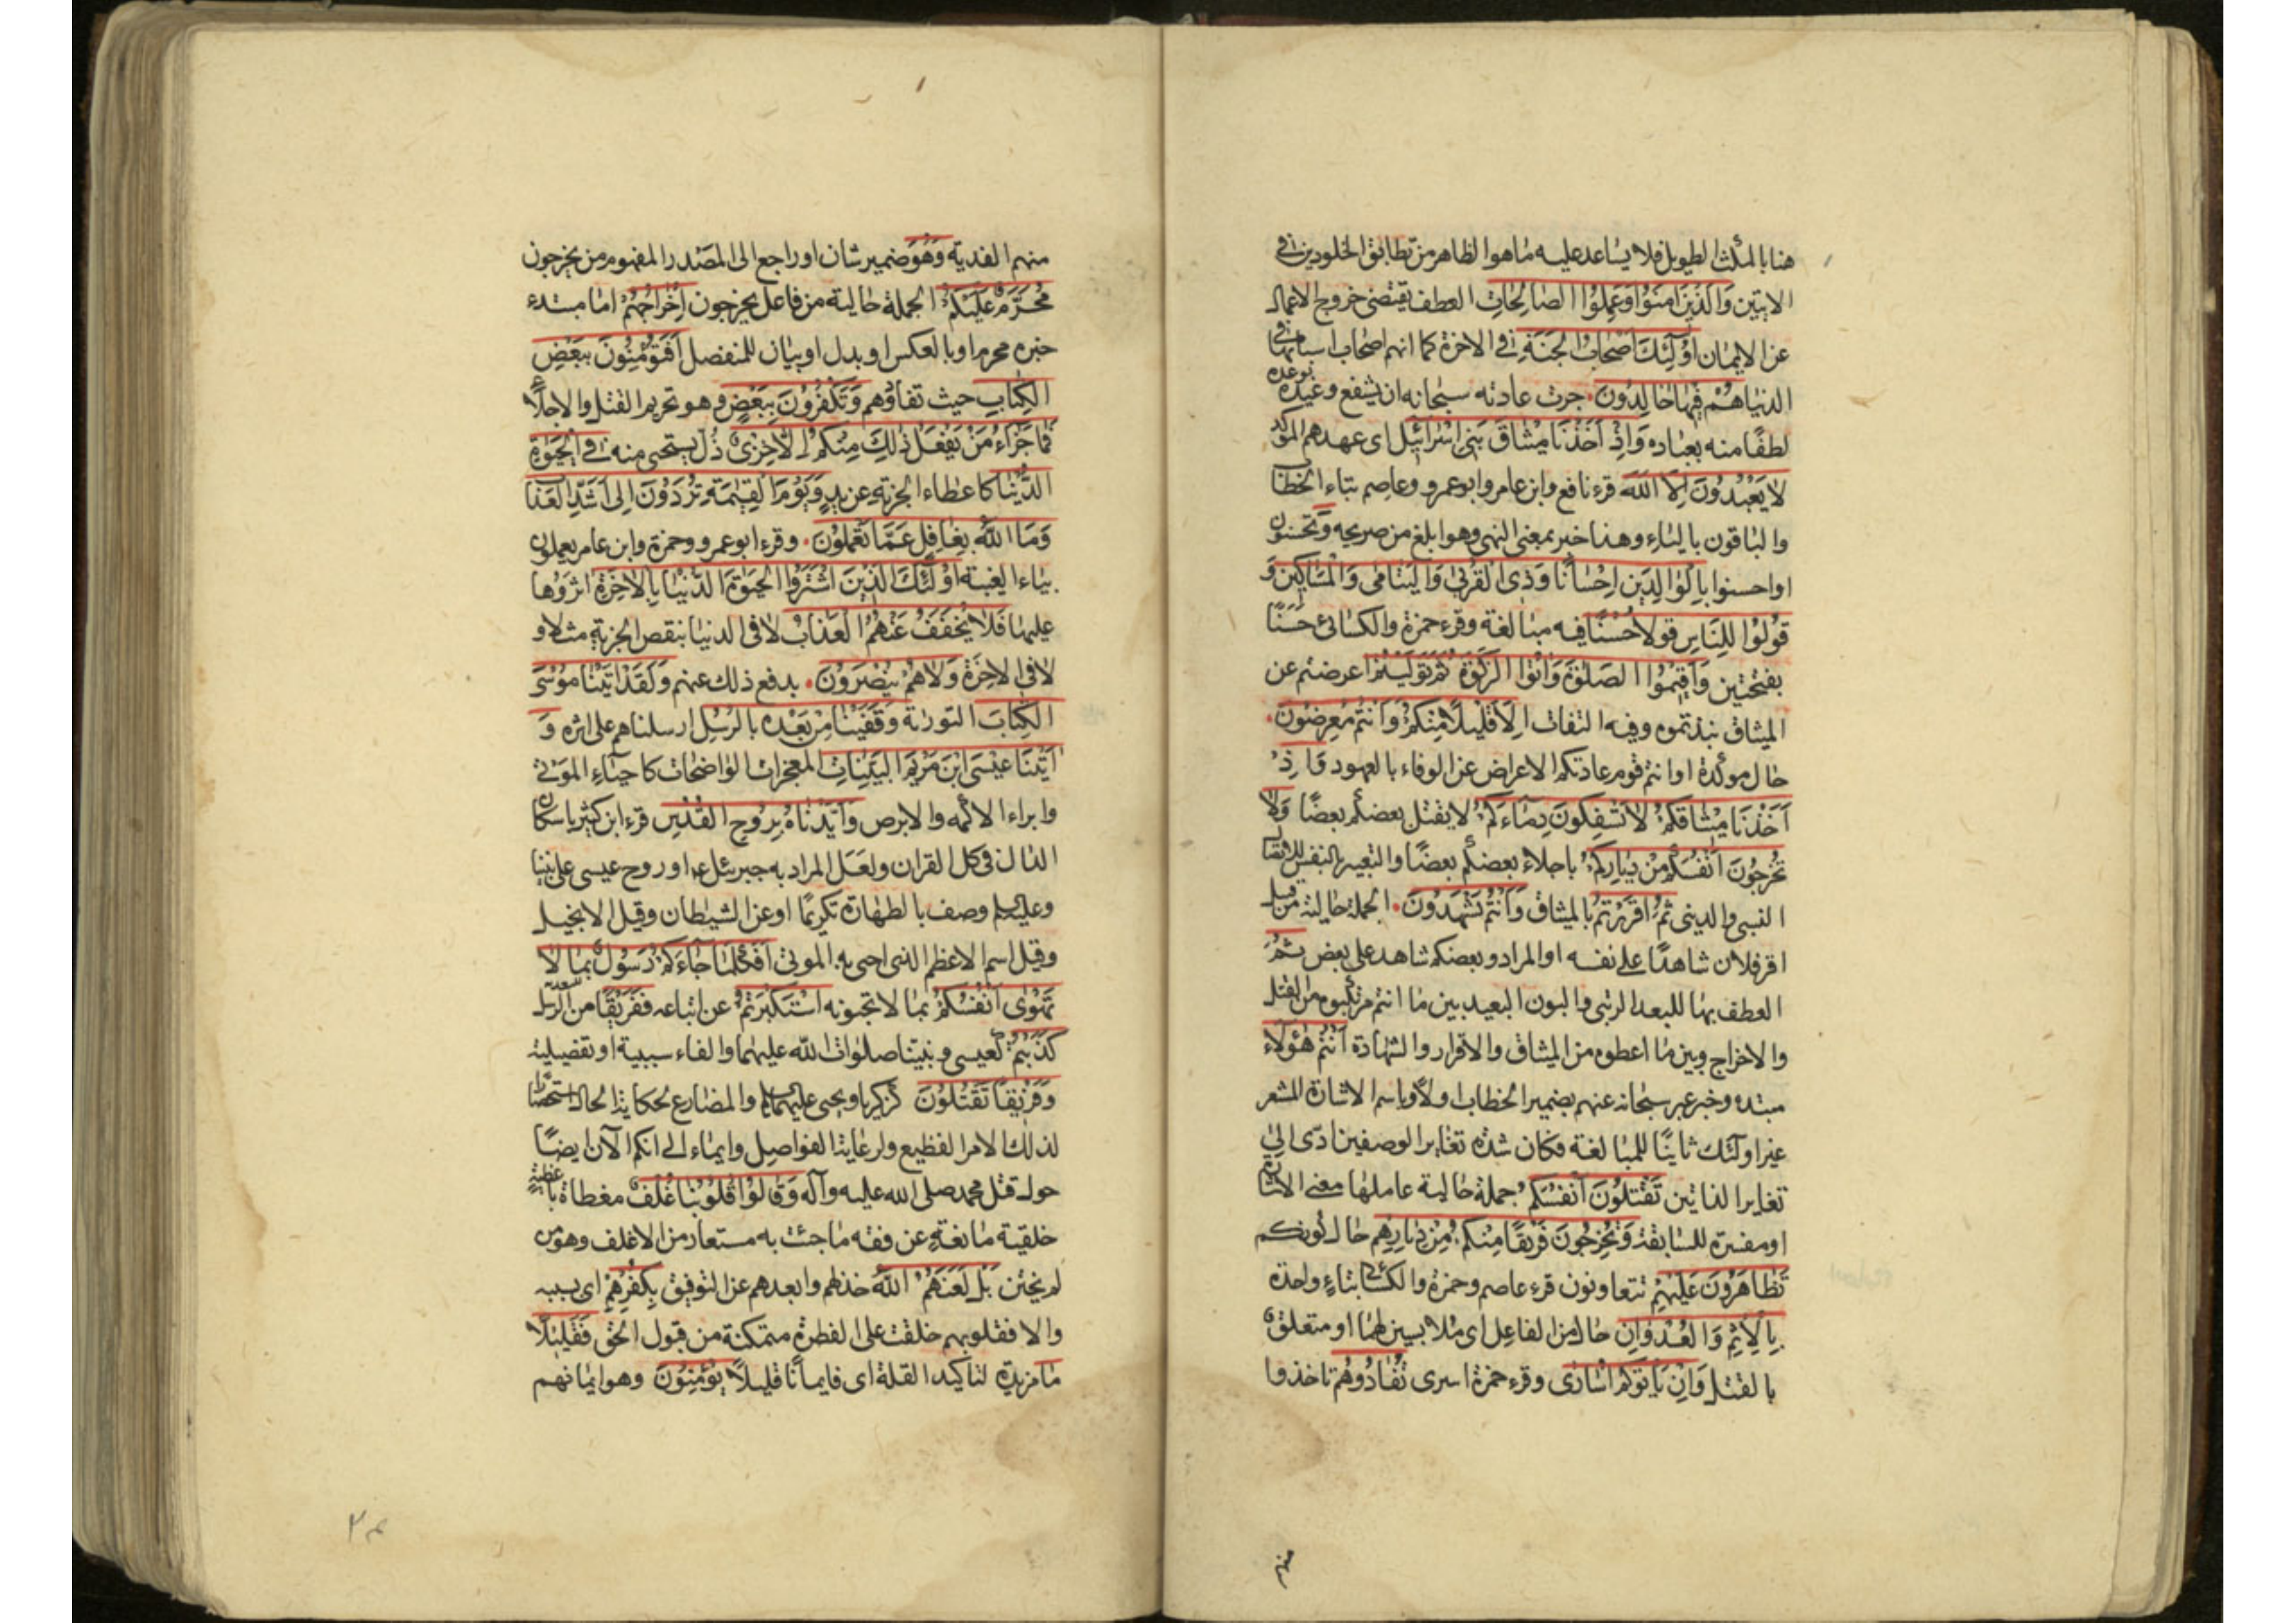 هنا بالمكث الطويل فلا يساعد عليه ما هو الظاهر من تطابق الخلودين في
الايتين وَالَّذِينَ امَنُوا وَعَمِلُوا الصَّالِحَاتِ العطف يقتضي خروج الاعمال
عن الايمان اُولَئِكَ اَصْحَابُ الْجَنَّةِ في الاخرة كما انهم اصحاب اسبابها في
الدنيا هُمْ فِيهَا خَالِدُونَ جرت عادته سبحانه ان يشفع وعيده بوعده
لطفًا منه بعباده وَاِذْ اَخَذْنَا مِيثَاقَ بَنِي اِسْرَائِيلَ اى عهدهم المؤكد
لا يَعْبُدُونَ اِلّا اللهَ قرء نافع وابن عامر وابو عمرو وعاصم بتاء الخطاب
والباقون بالياء وهذا خبر بمعنى النهي وهو ابلغ من صريحه وَتحسنون
او احسنوا بِالْوَالِدَيْنِ اِحْسَانًا وَذِي الْقُرْبَى وَالْيَتَامَى وَالْمَسَاكِينِ وَ
قُولُوا لِلنَّاسِ قولا حُسْنًا فيه مبالغة وقرء حمزة والكسائي حَسَنًا
بفتحتين وَاَقِيمُوا الصَّلوةَ وَاتُوا الزَّكوةَ ثُمَّ تَوَلَّيْتُمْ اعرضتم عن
الميثاق نبذتموه وفيه التفات اِلَّا قَلِيلًا مِنْكُمْ وَاَنْتُمْ مُعْرِضُونَ
حال مؤكدة او انتم قوم عادتكم الاعراض عن الوفاء بالعهود وَاِذْ
اَخَذْنَا مِيثَاقَكُمْ لَا تَسْفِكُونَ دِمَاءَكُمْ لا يقتل بعضكم بعضًا وَلَا
تُخْرِجُونَ اَنْفُسَكُمْ مِنْ دِيَارِكُمْ باجلاء بعضكم بعضًا والتعبير بالنفس للاتصال
النسبي والديني ثُمَّ اَقْرَرْتُمْ بالميثاق وَاَنْتُمْ تَشْهَدُونَ الجملة حالية من قبيل
اقر فلان شاهدًا على نفسه او المراد وبعضكم شاهد على بعض ثُمَّ
العطف بها للبعد الرتبي والبون البعيد بين ما انتم مرتكبوه من القتل
والاخراج وبين ما اعطوه من الميثاق والاقرار والشهادة اَنْتُمْ هؤُلَاءِ
مبتدء وخبر عبر سبحانه عنهم بضمير الخطاب اولا وباسم الاشارة المشعر
غير اولئك ثانيًا للمبالغة فكان شدة تغاير الوصفين ادّى الى
تغاير الذاتين تَقْتُلُونَ اَنْفُسَكُمْ جملة حالية عاملها معنى الاشارة
او مفسرة للسابقة وَتُخْرِجُونَ فَرِيقًا مِنْكُمْ مِنْ دِيَارِهِمْ حال كونكم
تَظَاهَرُونَ عَلَيْهِمْ تتعاونون قرء عاصم وحمزة والكسائي بتاءٍ واحدة
بِالْاِثْمِ وَالْعُدْوَانِ حال من الفاعل اى ملابسين لهما او متعلق
بالقتل وَاِنْ يَاْتُوكُمْ اُسَارَى وقرء حمزة اسرى تُفَادُوهُمْ تاخذوا
منهم
منهم الفدية وَهُوَ ضمير شان او راجع الى المصدر المفهوم من يخرجون
مُحَرَّمٌ عَلَيْكُمْ الجملة حالية من فاعل يخرجون اِخْرَاجُهُمْ اما مبتدء
خبره محرم او بالعكس او بدل او بيان للمنفصل اَفَتُؤْمِنُونَ بِبَعْضِ
الْكِتَابِ حيث تفاؤهم وَتَكْفُرُونَ بِبَعْضٍ وهو تحريم القتل والاجلاء
فَمَا جَزَاءُ مَنْ يَفْعَلُ ذلِكَ مِنْكُمْ اِلَّا خِزْىٌ ذلّ يستحيى منه فِي الْحَيوةِ
الدُّنْيَا كاعطاء الجزية عن يدٍ وَيَوْمَ الْقِيمَةِ تُرَدُّونَ اِلَى اَشَدِّ الْعَذَابِ
وَمَا اللهُ بِغَافِلٍ عَمَّا تَعْمَلُونَ وقرء ابو عمرو وحمزة وابن عامر يعملون
بياء الغيبة اُولئِكَ الَّذِينَ اشْتَرَوُا الْحَيوةَ الدُّنْيَا بِالْاخِرَةِ اثروها
عليها فَلَا يُخَفَّفُ عَنْهُمُ الْعَذَابُ لا في الدنيا بنقص الجزية مثلا و
لا في الاخرة وَلَا هُمْ يُنْصَرُونَ بدفع ذلك عنهم وَلَقَدْ اتَيْنَا مُوسَى
الْكِتَابَ التورية وَقَفَّيْنَا مِنْ بَعْدِهِ بِالرُّسُلِ ارسلناهم على اثره وَ
اتَيْنَا عِيسَى ابْنَ مَرْيَمَ الْبَيِّنَاتِ المعجزات الواضحات كاحياء الموتى
وابراء الاكمه والابرص وَاَيَّدْنَاهُ بِرُوحِ الْقُدُسِ قرء ابن كثير باسكان
الدال في كل القران ولعل المراد به جبرئيل ع او روح عيسى على نبينا
وعليه السلم وصف بالطهارة تكريمًا او عن الشيطان وقيل الانجيل
وقيل اسم الاعظم الذى احيى به الموتى اَفَكُلَّمَا جَاءَكُمْ رَسُولٌ بِمَا لَا
تَهْوَى اَنْفُسُكُمْ بما لا تحبونه اسْتَكْبَرْتُمْ عن اتباعه فَفَرِيقًا من الرسل
كَذَّبْتُمْ كعيسى ونبينا صلوات الله عليهما والفاء سببية او تفصيلية
وَفَرِيقًا تَقْتُلُونَ كزكريا ويحيى عليهما السلم والمضارع لحكاية الحال استحضارا
لذلك الامر الفظيع ولرعاية الفواصل وايماء الى انكم الآن ايضًا
حول قتل محمد صلى الله عليه وآله وَقَالُوا قُلُوبُنَا غُلْفٌ مغطاة باغطية
خلقية مانعةٍ عن فقه ما جئت به مستعار من الاغلف وهو من
لم يختن بَلْ لَعَنَهُمُ اللهُ خذلهم وابعدهم عن التوفيق بِكُفْرِهِمْ اى بسببه
والا فقلوبهم خلقت على الفطرة متمكنة من قبول الحق فَقَلِيلًا
مَا مزيدة لتاكيد القلة اى فايمانًا قليلًا يُؤْمِنُونَ وهو ايمانهم